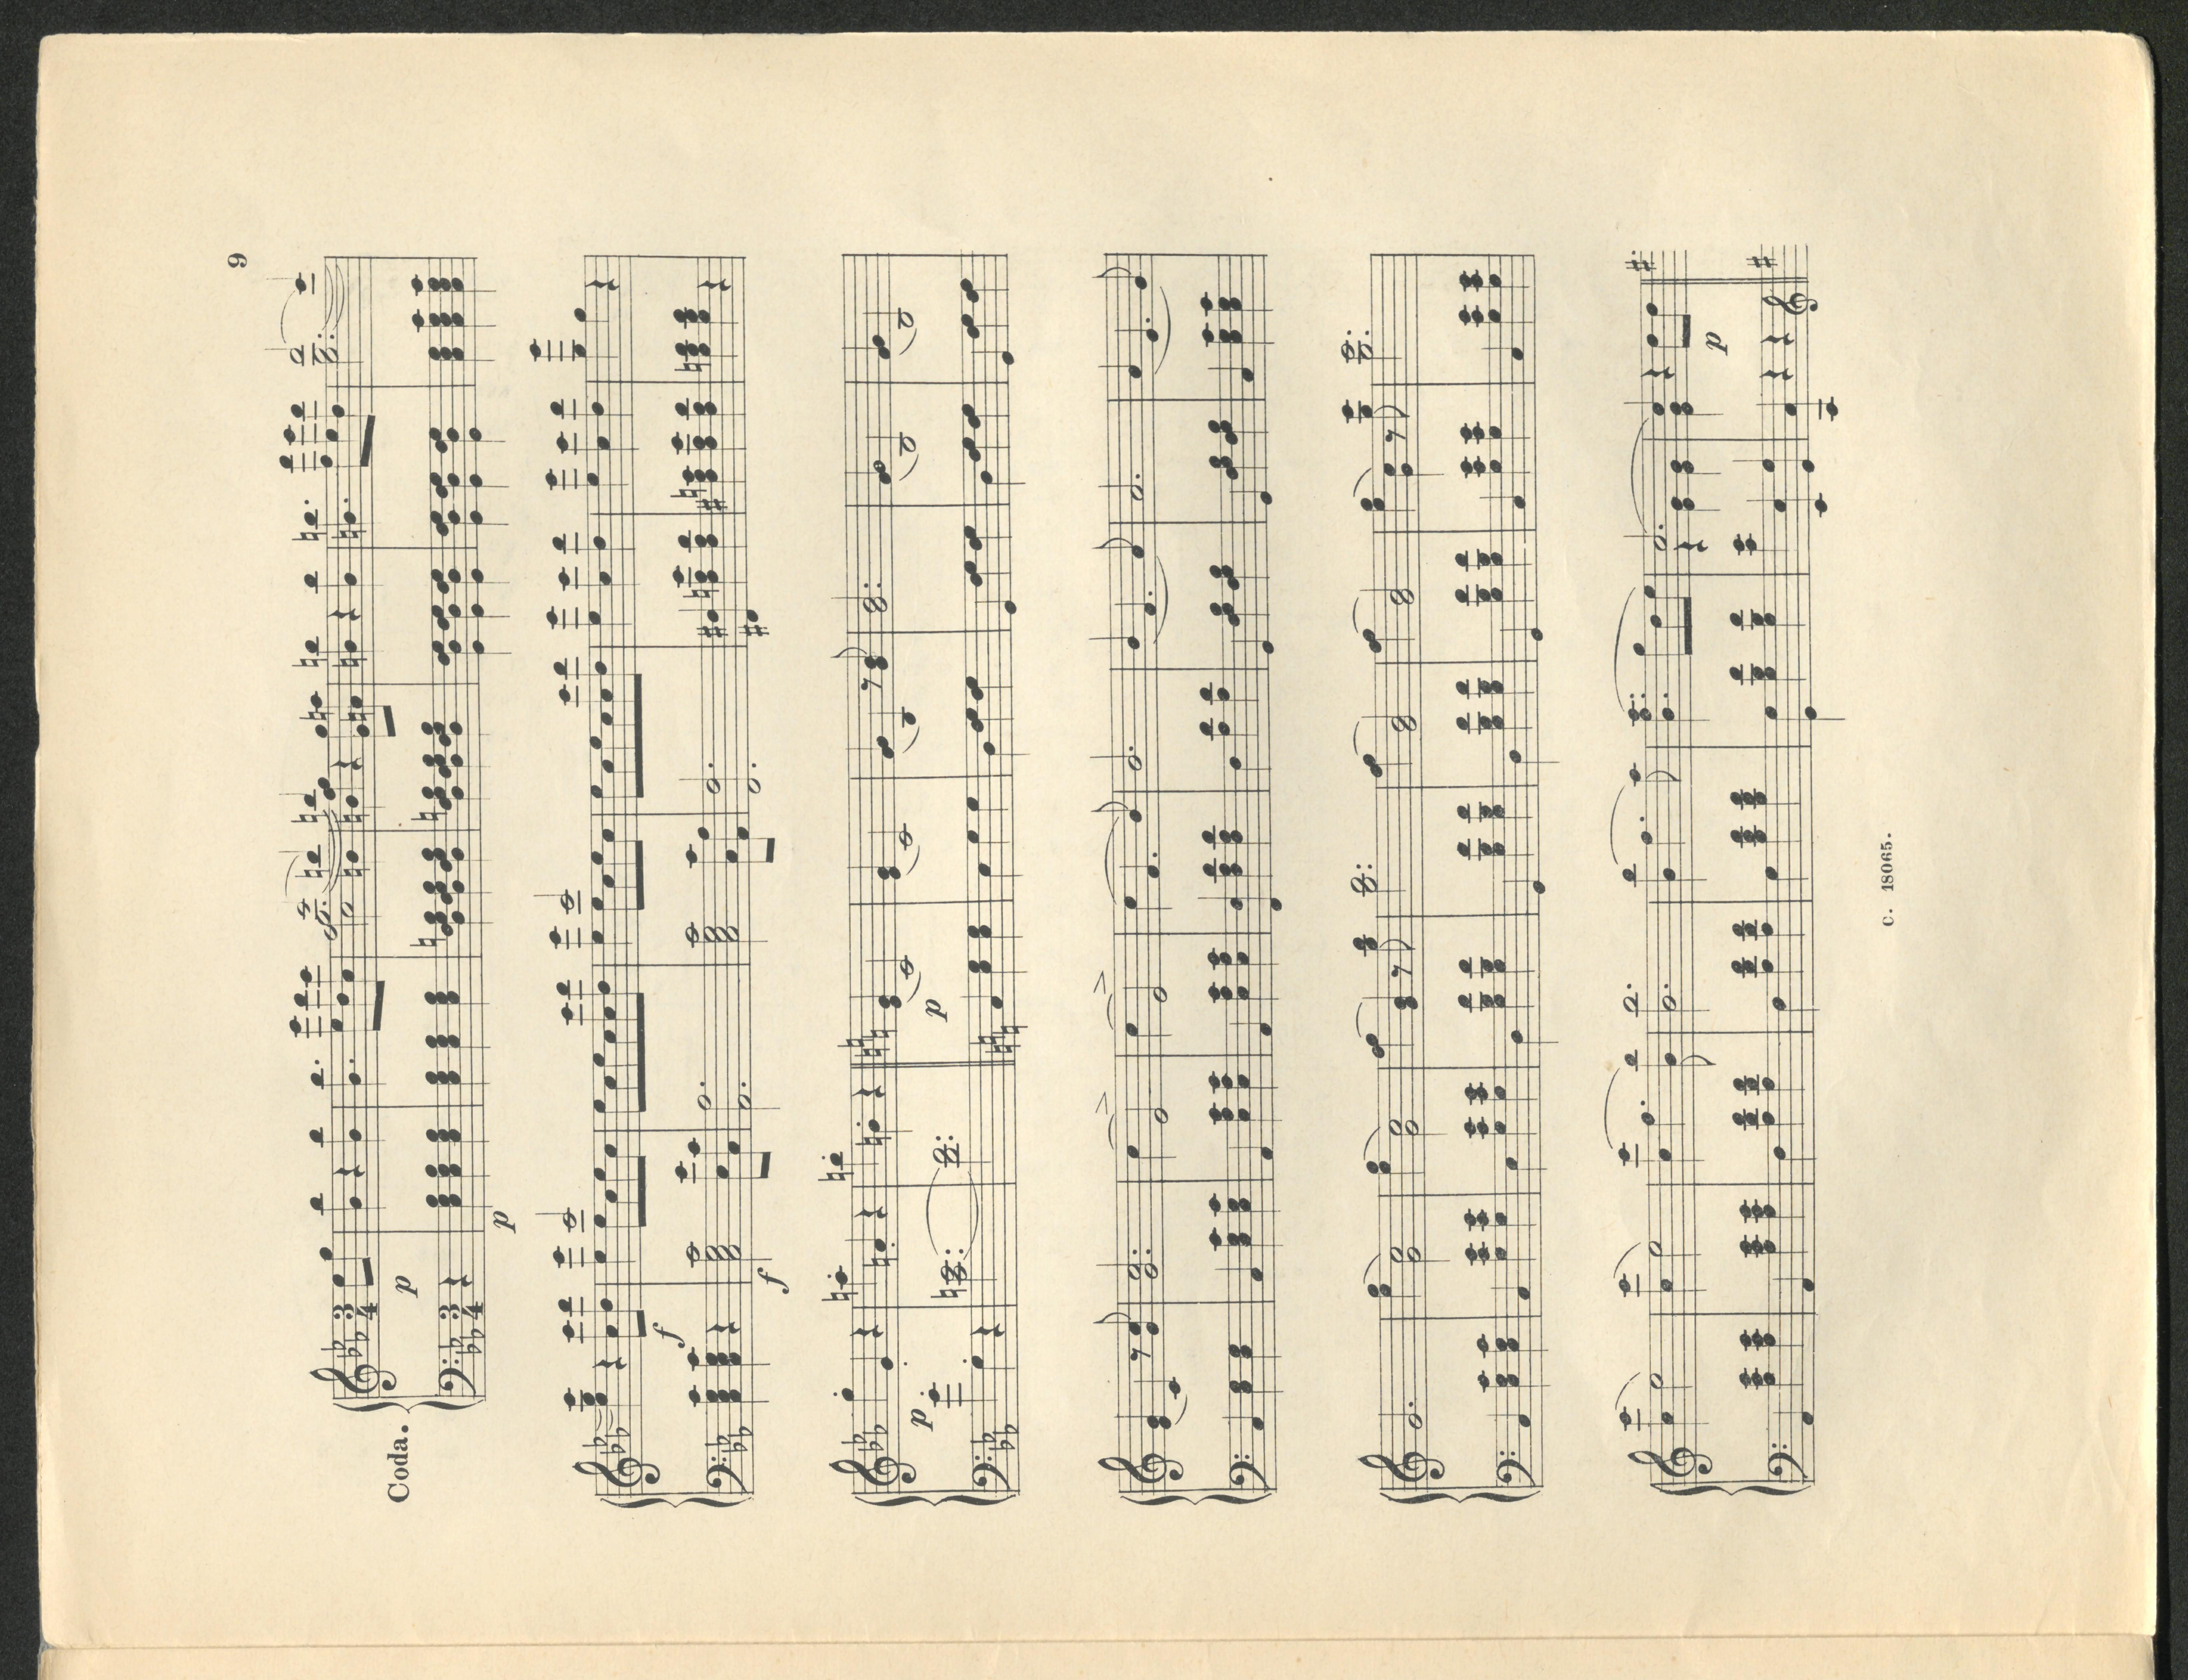 9
Coda.
p
p
f
f
p
p
p
C. 18065.